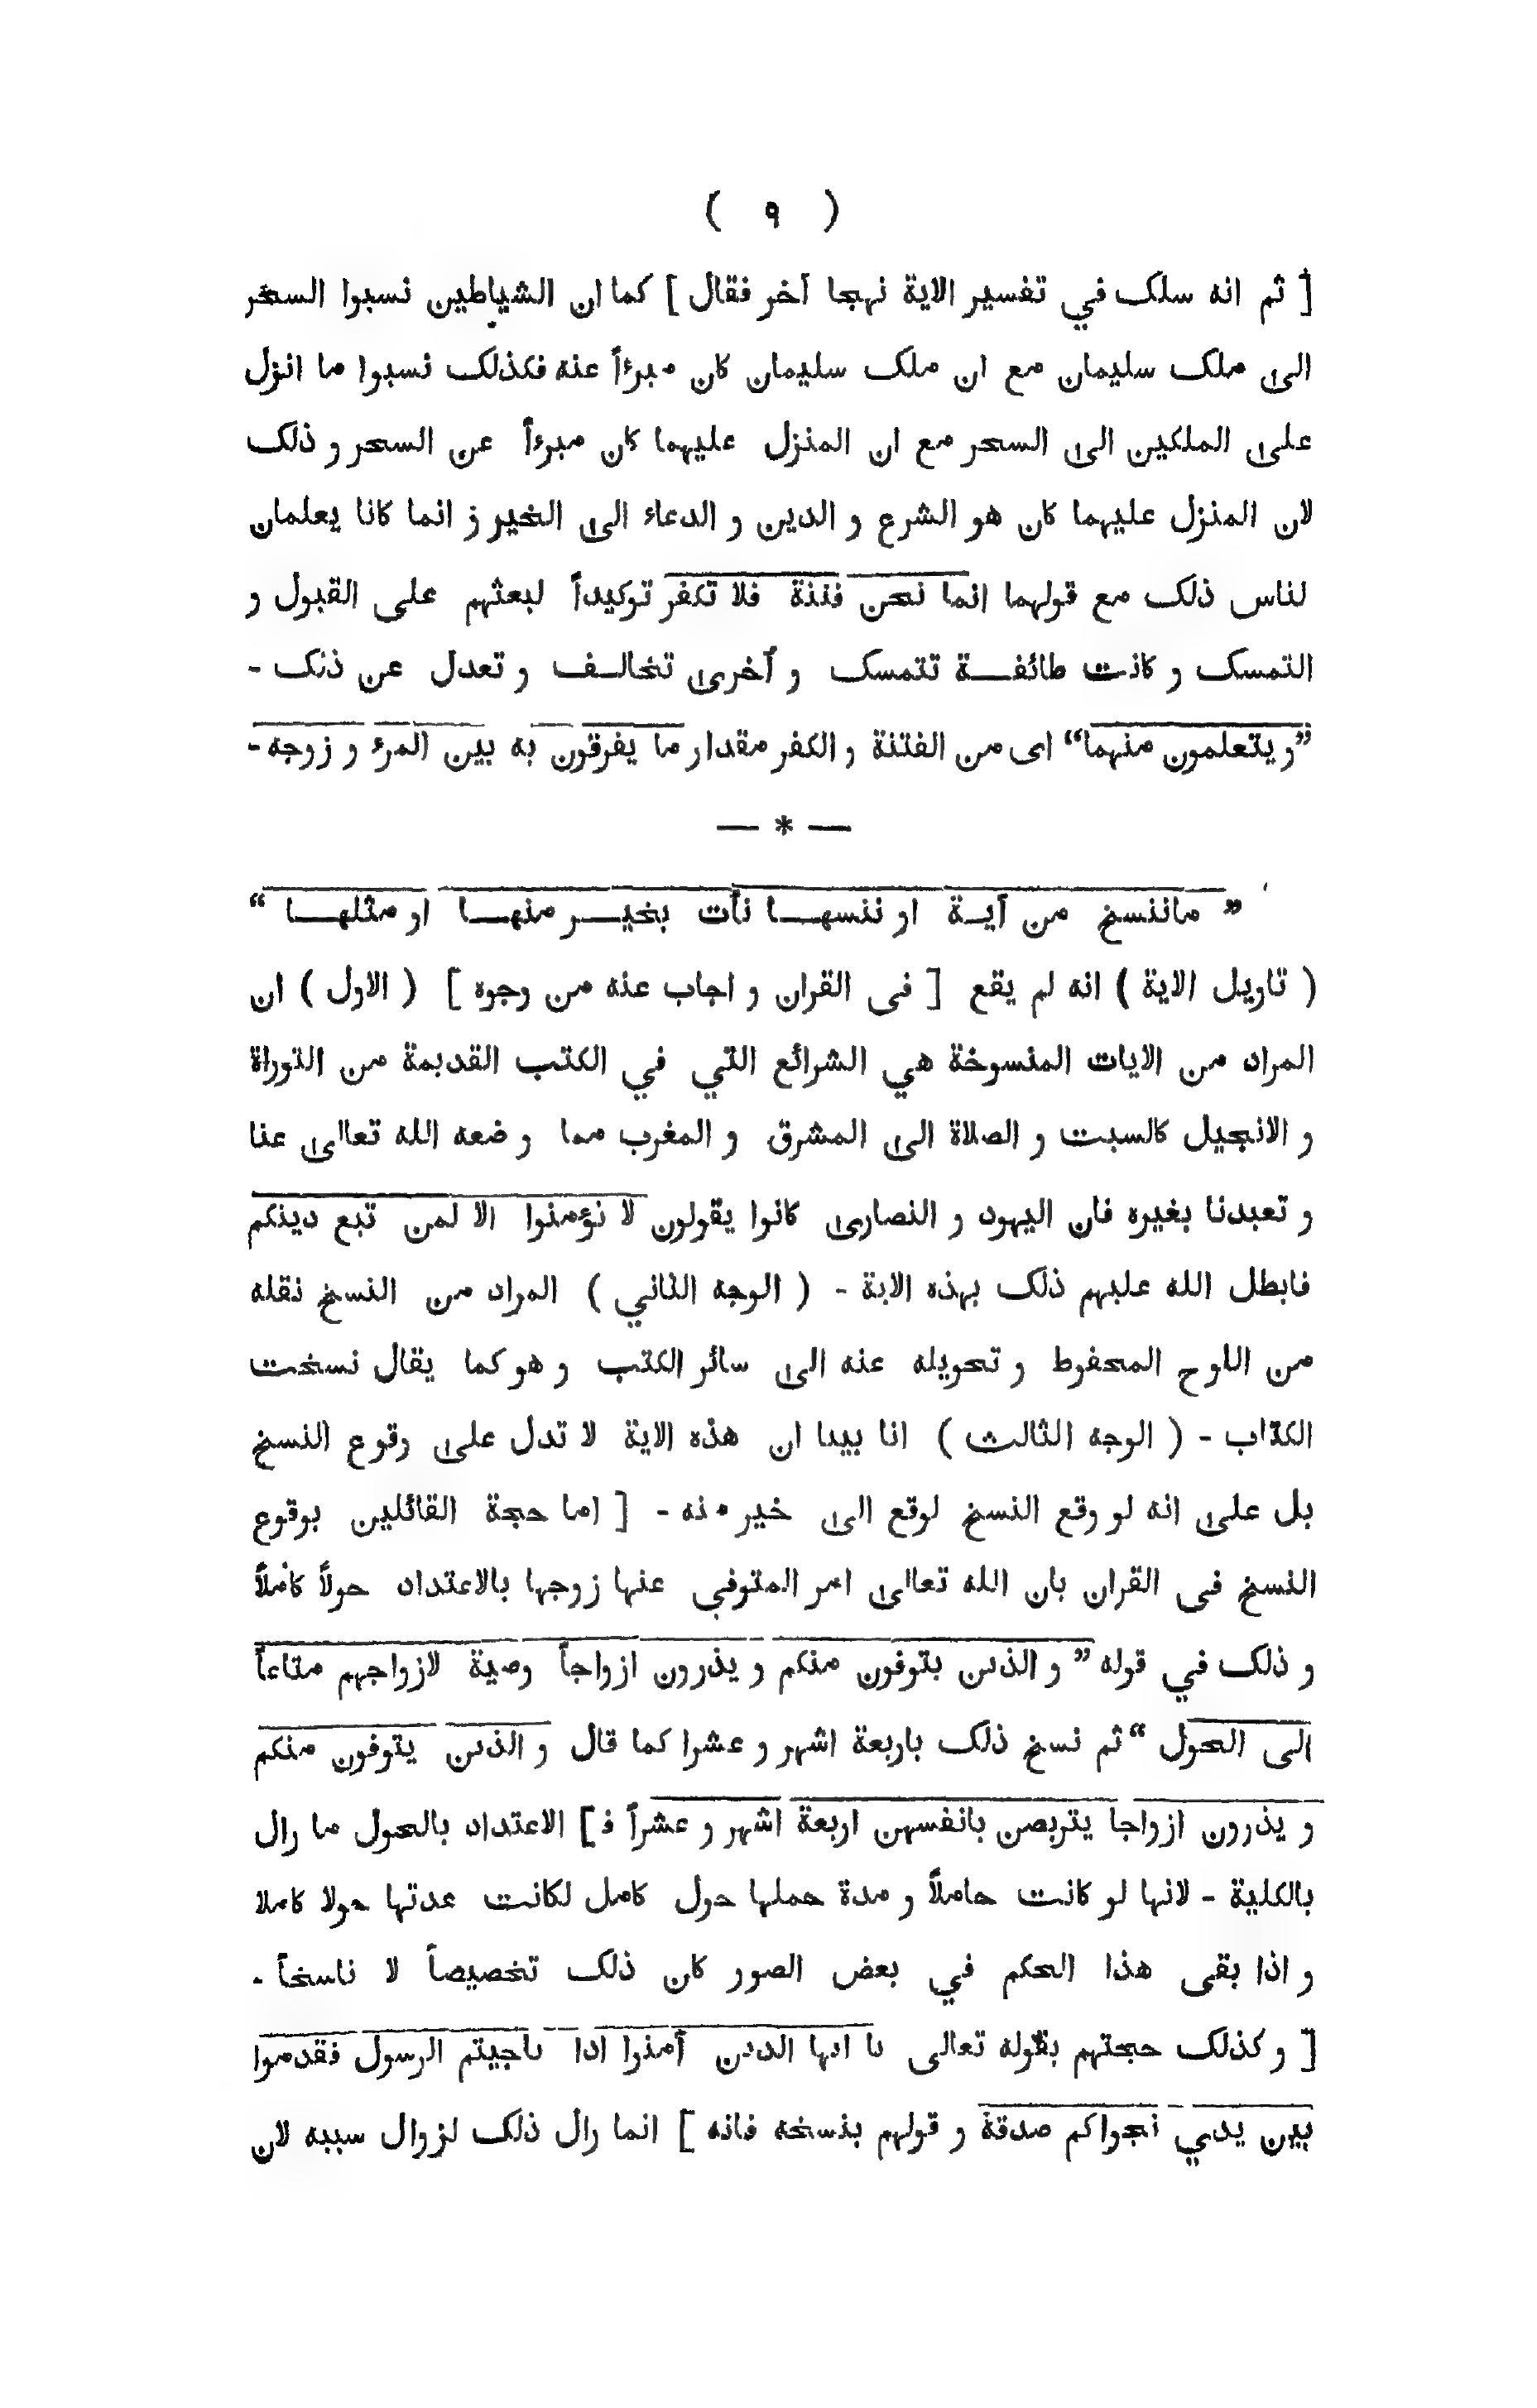 ( ٩ )
[ ثم انه سلك في تفسير الاية نهجا آخر فقال ] كما ان الشياطين نسبوا السحر
الى ملك سليمان مع ان ملك سليمان كان مبرءاً عنه فكذلك نسبوا ما انزل
على الملكين الى السحر مع ان المنزل عليهما كان مبرءاً عن السحر و ذلك
لان المنزل عليهما كان هو الشرع و الدين و الدعاء الى الخير ز انما كانا يعلمان
لناس ذلك مع قولهما انما نحن فتنة فلا تكفر توكيداً لبعثهم على القبول و
التمسك و كانت طائفة تتمسك و أخرى تخالف و تعدل عن ذنك -
”و يتعلمون منهما“ اى من الفتنة و الكفر مقدار ما يفرقون به بين المرء و زوجه -
— * —
” ماننسخ من آية او ننسها نأت بخير منها او مثلها “
( تاويل الاية ) انه لم يقع [ فى القران و اجاب عنه من وجوه ] ( الاول ) ان
المراد من الايات المنسوخة هي الشرائع التي في الكتب القديمة من التوراة
و الانجيل كالسبت و الصلاة الى المشرق و المغرب مما وضعه الله تعالى عنا
و تعبدنا بغيره فان اليهود و النصارى كانوا يقولون لا نؤمنوا الا لمن تبع دينكم
فابطل الله عليهم ذلك بهذه الاية - ( الوجه الثاني ) المراد من النسخ نقله
من اللوح المحفوظ و تحويله عنه الى سائر الكتب و هو كما يقال نسخت
الكتاب - ( الوجه الثالث ) انا بينا ان هذه الاية لا تدل على وقوع النسخ
بل على انه لو وقع النسخ لوقع الى خير منه - [ اما حجة القائلين بوقوع
النسخ فى القران بان الله تعالى امر المتوفي عنها زوجها بالاعتداد حولاً كاملاً
و ذلك في قوله ” و الذين يتوفون منكم و يذرون ازواجاً وصية لازواجهم متاعاً
الى الحول “ ثم نسخ ذلك باربعة اشهر و عشرا كما قال و الذين يتوفون منكم
و يذرون ازواجا يتربصن بانفسهن اربعة اشهر و عشراً ف ] الاعتداد بالحول ما زال
بالكلية - لانها لو كانت حاملاً و مدة حملها حول كامل لكانت عدتها حولا كاملا
و اذا بقى هذا الحكم في بعض الصور كان ذلك تخصيصاً لا ناسخاً -
[ و كذلك حجتهم بقوله تعالى يا ايها الذين آمنوا اذا ناجيتم الرسول فقدموا
بين يدي نجواكم صدقة و قولهم بنسخه فانه ] انما زال ذلك لزوال سببه لان